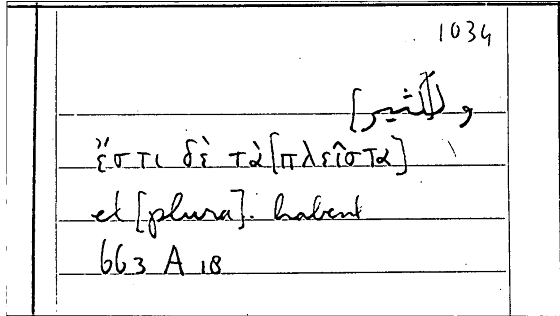 1034
و
ἔστι δὲ τὰ [πλεῖστα]
et [plura]. habent
663 A 18